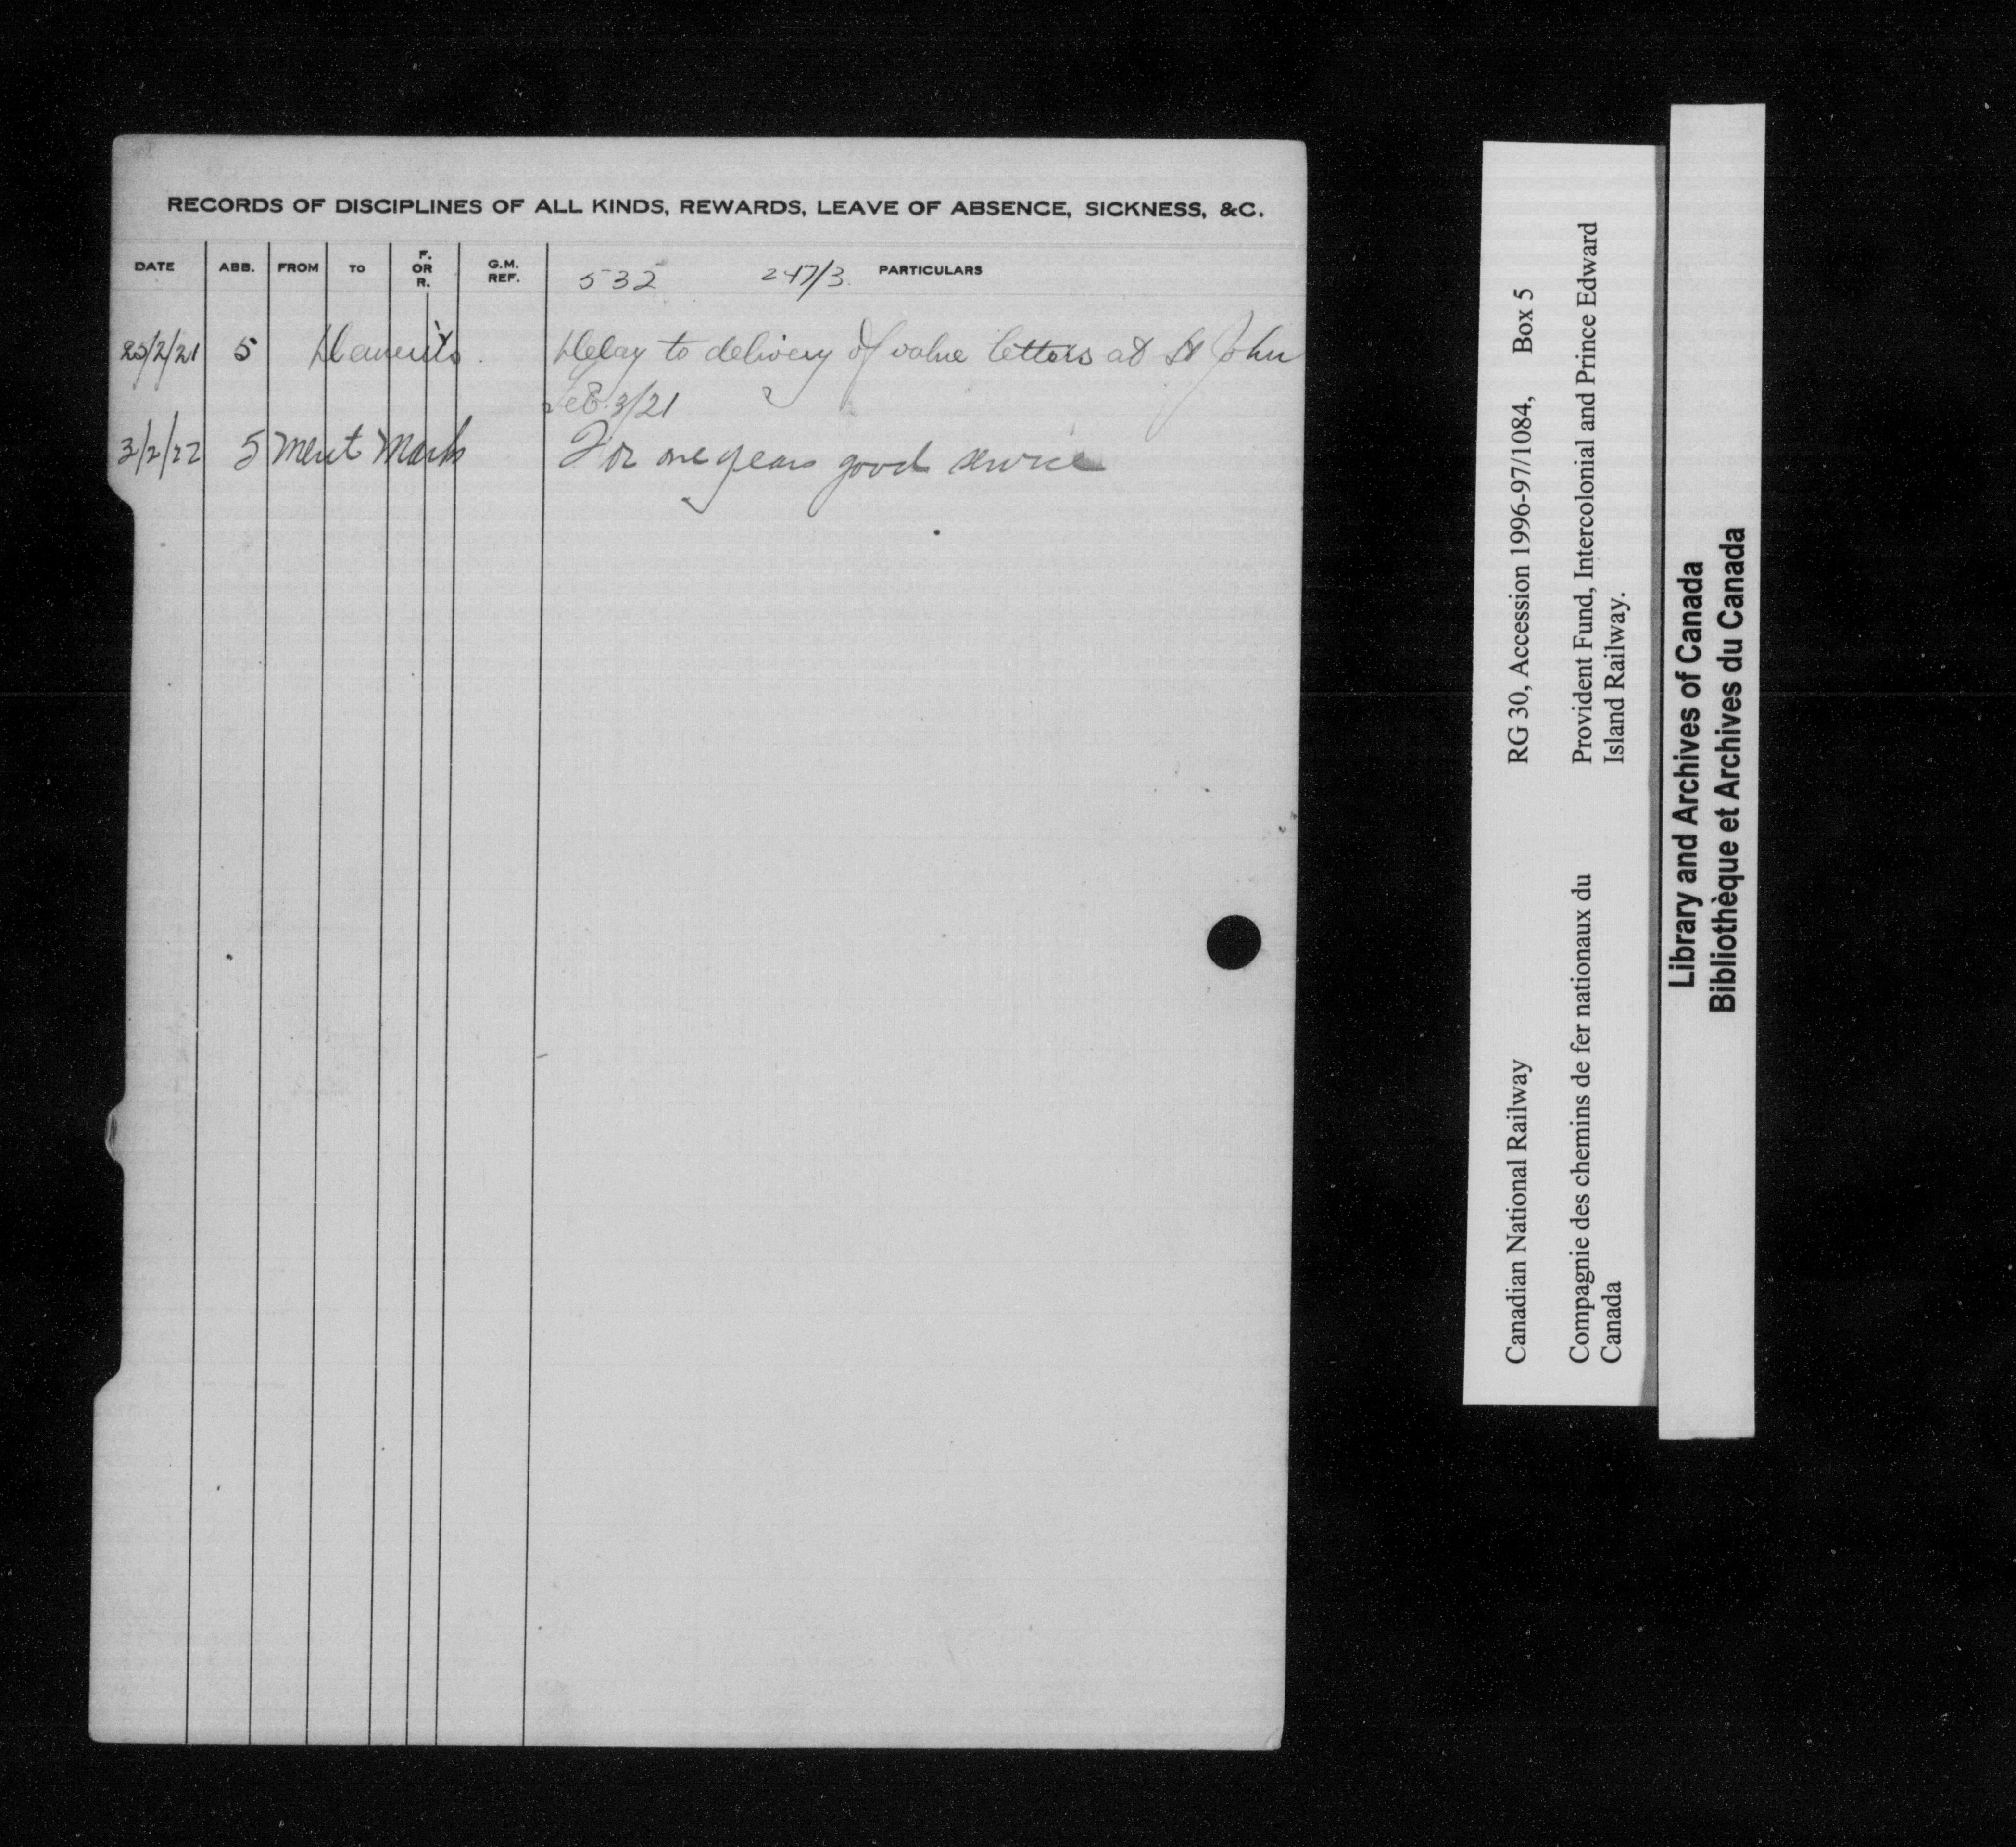 RECORDS OF DISCIPLINES OF ALL KINDS, REWARDS, LEAVE OF ABSENCE, SICKNESS, &C.
DATE ABB. FROM TO F. OR R. G.M. REF. 532 247/3 PARTICULARS
25/2/21 5 Demerits. Delay to delivery of value letters at St John
Feb. 3/21
3/2/22 5 Merit Marks For one years good service
Canadian National Railway RG 30, Accession 1996-97/1084, Box 5
Compagnie des chemins de fer nationaux du Provident Fund, Intercolonial and Prince Edward
Canada Island Railway.
Library and Archives of Canada
Bibliothèque et Archives du Canada